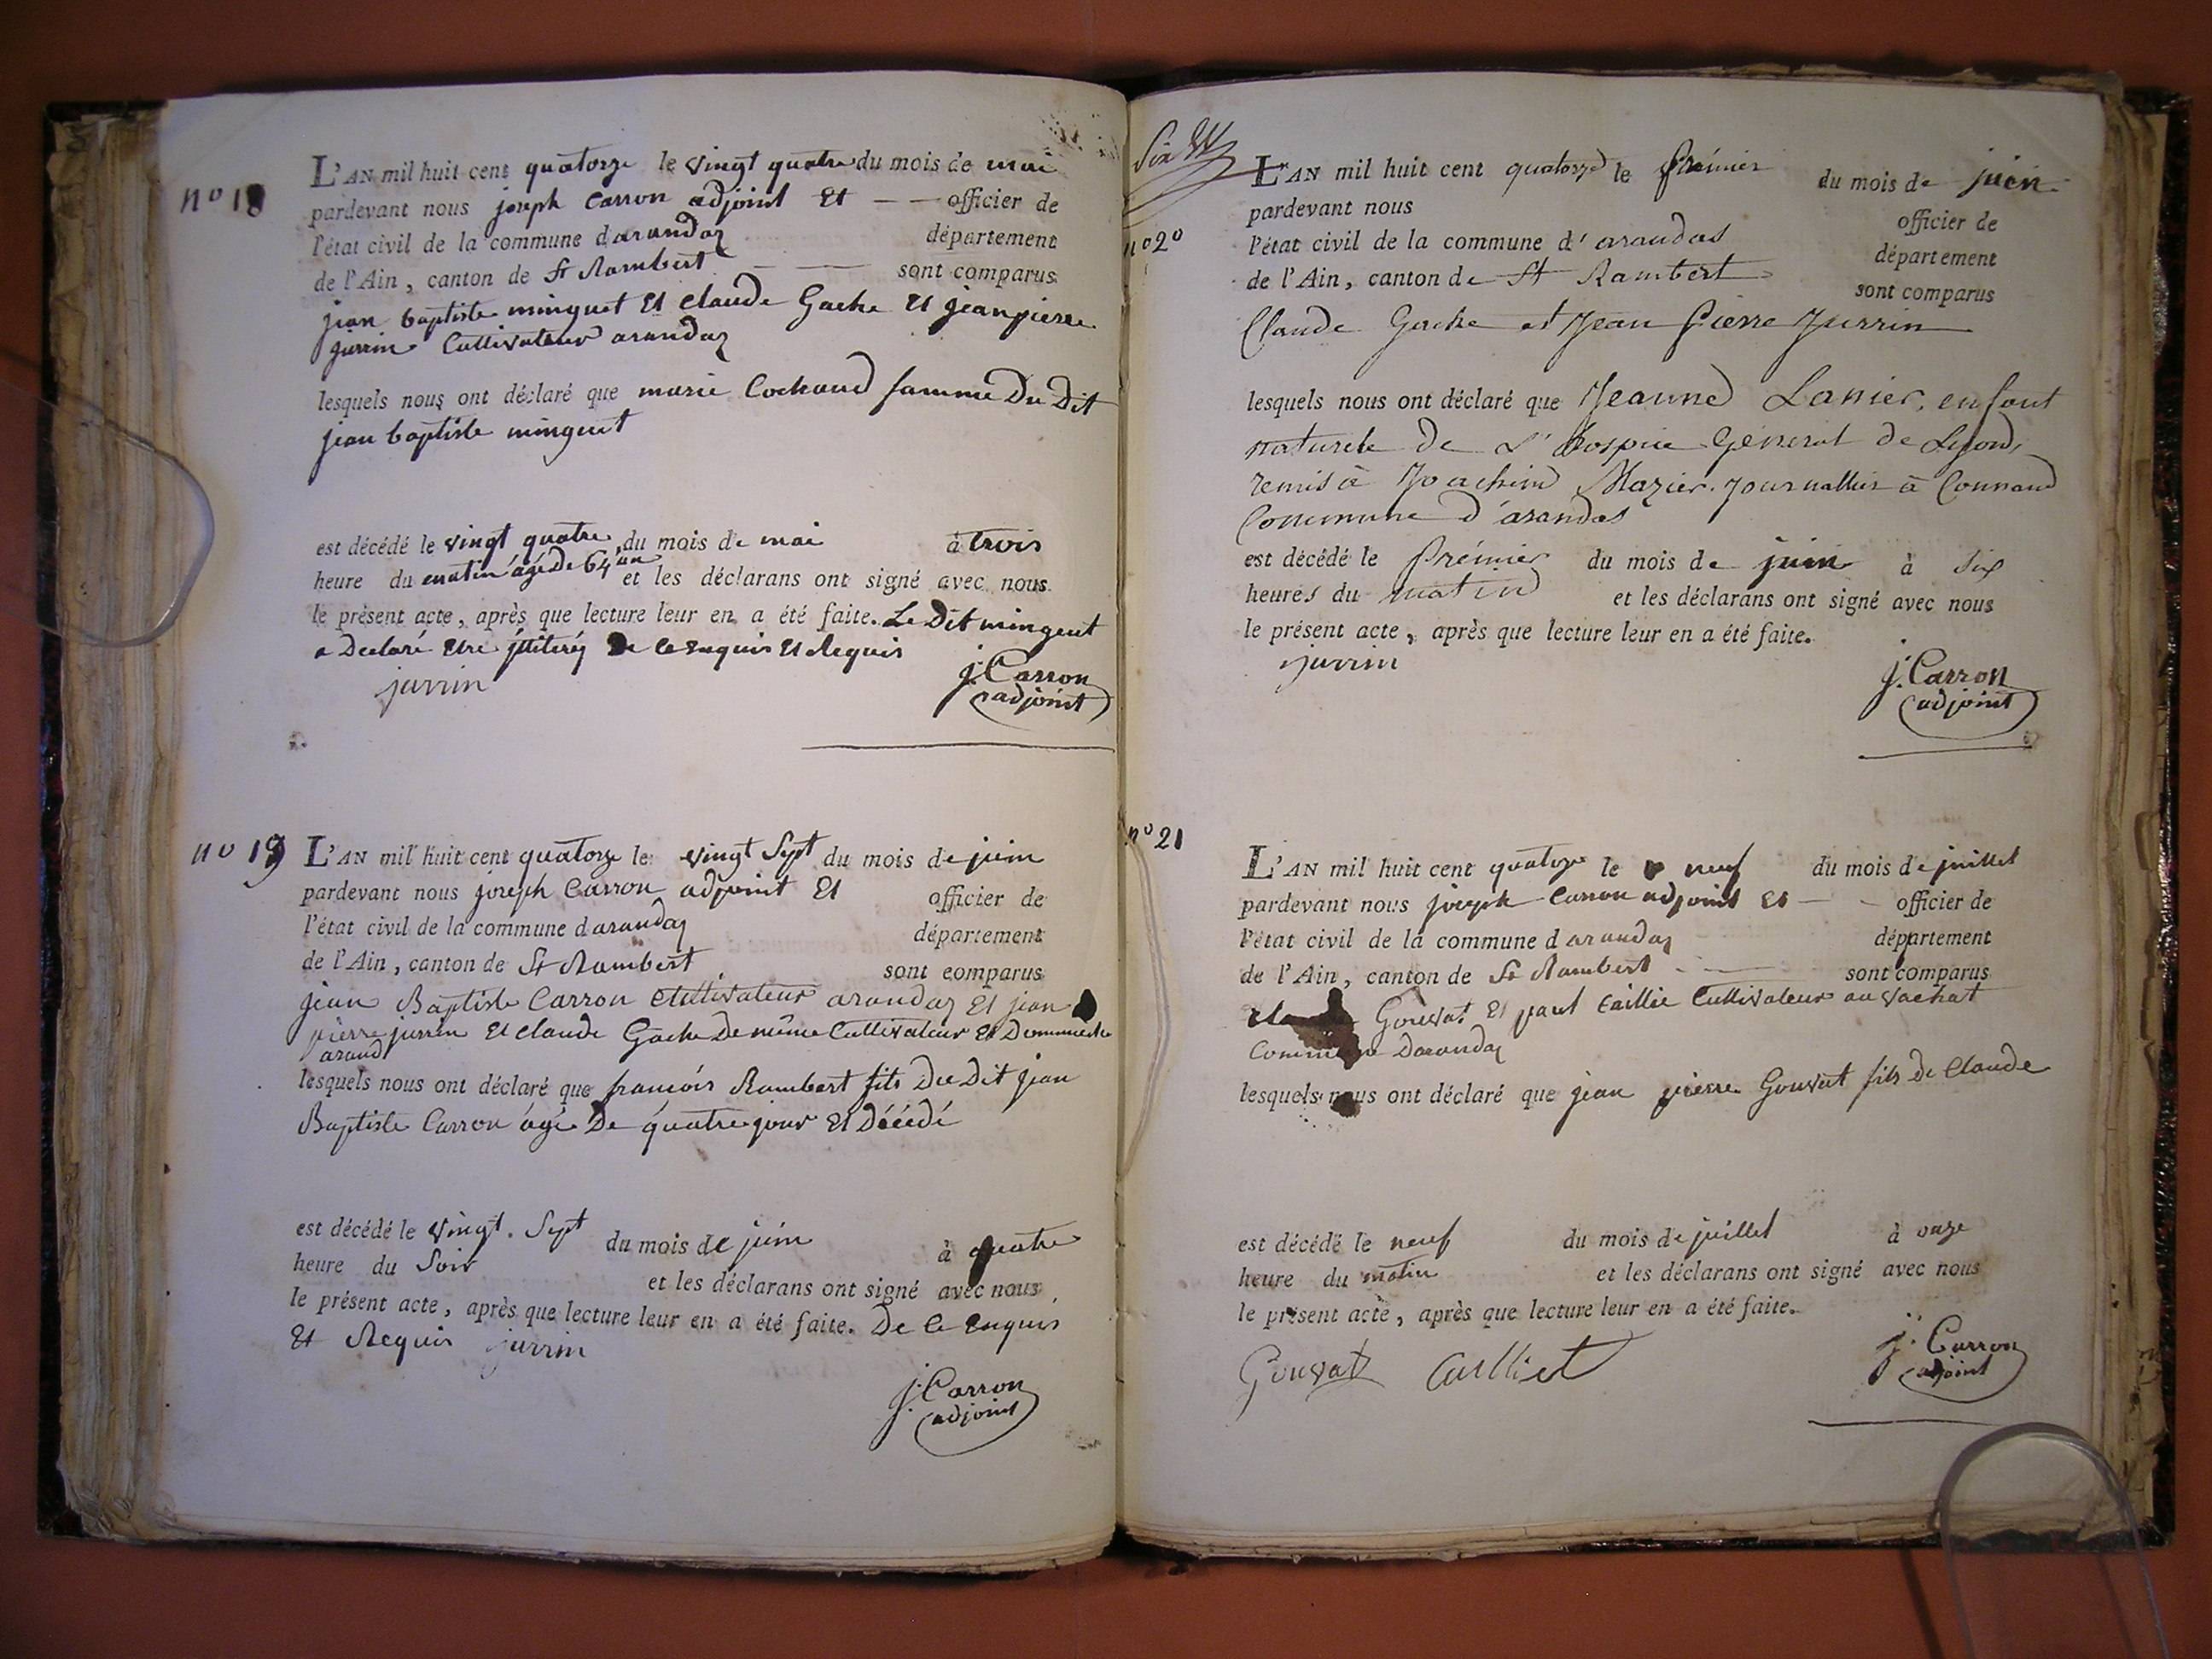 n° 18
L'AN mil huit cent quatorze le vingt quatre du mois de mai
pardevant nous joseph Carron adjoint Et — — officier de
l'état civil de la commune d arandaz département
de l'Ain, canton de St Rambert — — sont comparus
jean baptiste minguet Et Claude Gache Et jeanpierre
jurrin Cultivateur arandaz
lesquels nous ont déclaré que marie Cochaud famme Du Dit
jean baptiste minguet
est décédé le vingt quatre du mois de mai à trois
heure du matin agé de 64 an et les déclarans ont signé avec nous
le présent acte, après que lecture leur en a été faite. Le Dit minguet
a Declaré Etre illitéré De Ce Enquis Et Requis
jurrin
j. Carron
adjoint
n° 19
L'AN mil huit cent quatorze le vingt Sept du mois de juin
pardevant nous joseph Carron adjoint Et officier de
l'état civil de la commune d arandaz département
de l'Ain, canton de St Rambert sont comparus
jean Baptiste Carron Cultivateur arandaz Et jean
pierre jurrin Et Claude Gache De même Cultivateur Et
arand
lesquels nous ont déclaré que francois Rambert fils Du Dit jean
Baptiste Carron âgé De quatre jour Et Décédé
est décédé le vingt. Sept du mois de juin à quatre
heure du Soir et les déclarans ont signé avec nous
le présent acte, après que lecture leur en a été faite. De Ce Enquis
Et Requis jurrin
j. Carron
adjoint
Six
n° 20
L'AN mil huit cent quatorze le Prémier du mois de juin
pardevant nous officier de
l'état civil de la commune d' arandas département
de l'Ain, canton de St Rambert sont comparus
Claude Gache et Jean Pierre Jurrin
lesquels nous ont déclaré que Jeanne Lanier, enfant
naturele de L'hospice Géneral de Lyon,
remis à Joachim Mazier. Journallier à Connand
Commune d'arandas
est décédé le Prémier du mois de juin à six
heures du matin et les déclarans ont signé avec nous
le présent acte, après que lecture leur en a été faite.
jurrin
j. Carron
adjoint
n° 21
L'AN mil huit cent quatorze le neuf du mois de juillet
pardevant nous joseph Carron adjoint Et — - officier de
l'état civil de la commune d arandaz département
de l'Ain, canton de St Rambert — sont comparus
Gouvat Et paul Caillie Cultivateur au vachat
Commune Darandaz
lesquels nous ont déclaré que jean pierre Gouvat fils De Claude
est décédé le neuf du mois de juillet à onze
heure du matin et les déclarans ont signé avec nous
le présent acte, après que lecture leur en a été faite.
Gouvat Cailliet
j. Carron
adjoint